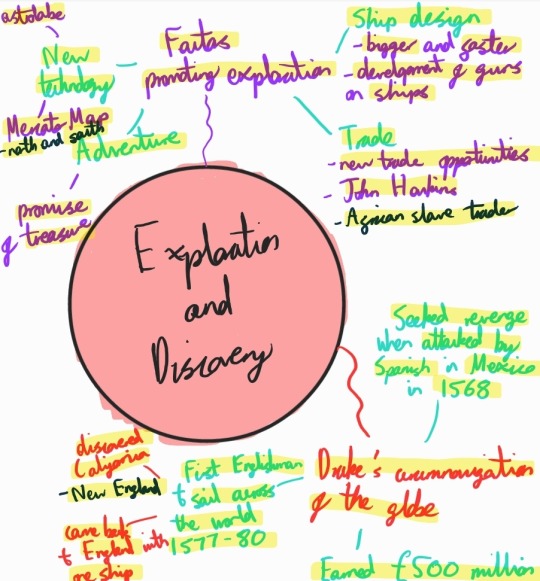 astrolabe
New
technology
Mercator Map
- north and south
Adventure
promise
of treasure
Factors
promoting exploration
Ship design
- bigger and faster
- development of guns
on ships
Trade
- new trade opportunities
- John Hawkins
- African slave trade
Exploration
and
Discovery
Seeked revenge
when attacked by
Spanish in Mexico
in 1568
Drake's circumnavigation
of the globe
First Englishman
to sail across
the world
1577-80
discovered
California
- New England
came back
to England with
one ship
Earned £500 million